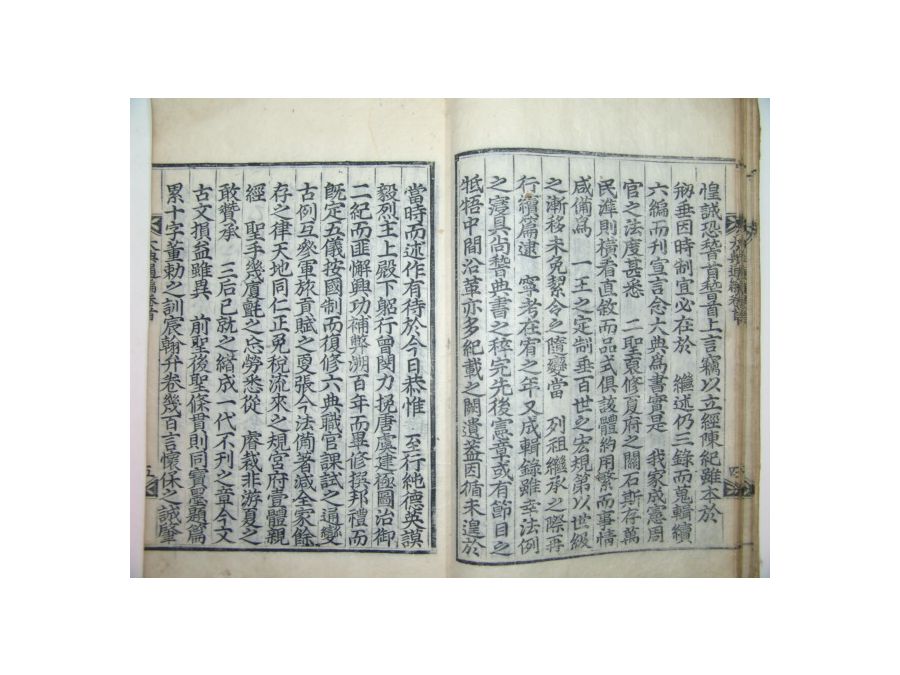 惶誠恐稽首稽首上言竊以立經陳紀雖本於
刱垂因時制宜必在於 繼述仍三錄而蒐輯續
六編而刊宣言念大典爲書實是 我家成憲周
官之法度甚悉 二聖裒修夏府之關石斯存萬
民準則橫看直敘而品式俱該體約用繁而事情
咸備爲 一王之定制垂百世之宏規第以世級
之漸移未免絜令之隨變當 列祖繼承之際再
行續篇逮 寧考在宥之年又成輯錄雖幸法例
之寖具尙 典書之稡完先後憲章或有節目之
牴牾中間沿革亦多紀載之闕遺蓋因循未遑於
當時而述作有待於今日恭惟 至行純德英謨
毅烈主上殿下躬行曾閔力挽唐虞建極圖治御
二紀而匪懈興功補弊溯百年而畢修撰邦禮而
旣定五儀按國制而復修六典職官課試之通變
古例互參軍旅貢賦之更張今法備著減全家餘
存之律天地同仁正免稅流來之規宮府壹體親
經 聖手幾廈氈之忘勞悉從 睿裁非游夏之
敢贊承 三后已就之緖成一代不刊之章今文
古文損益雖異 前聖後聖條貫則同寶墨題篇
累十字董勅之訓宸翰弁卷幾百言懷保之諴肇
大典通編卷首
五